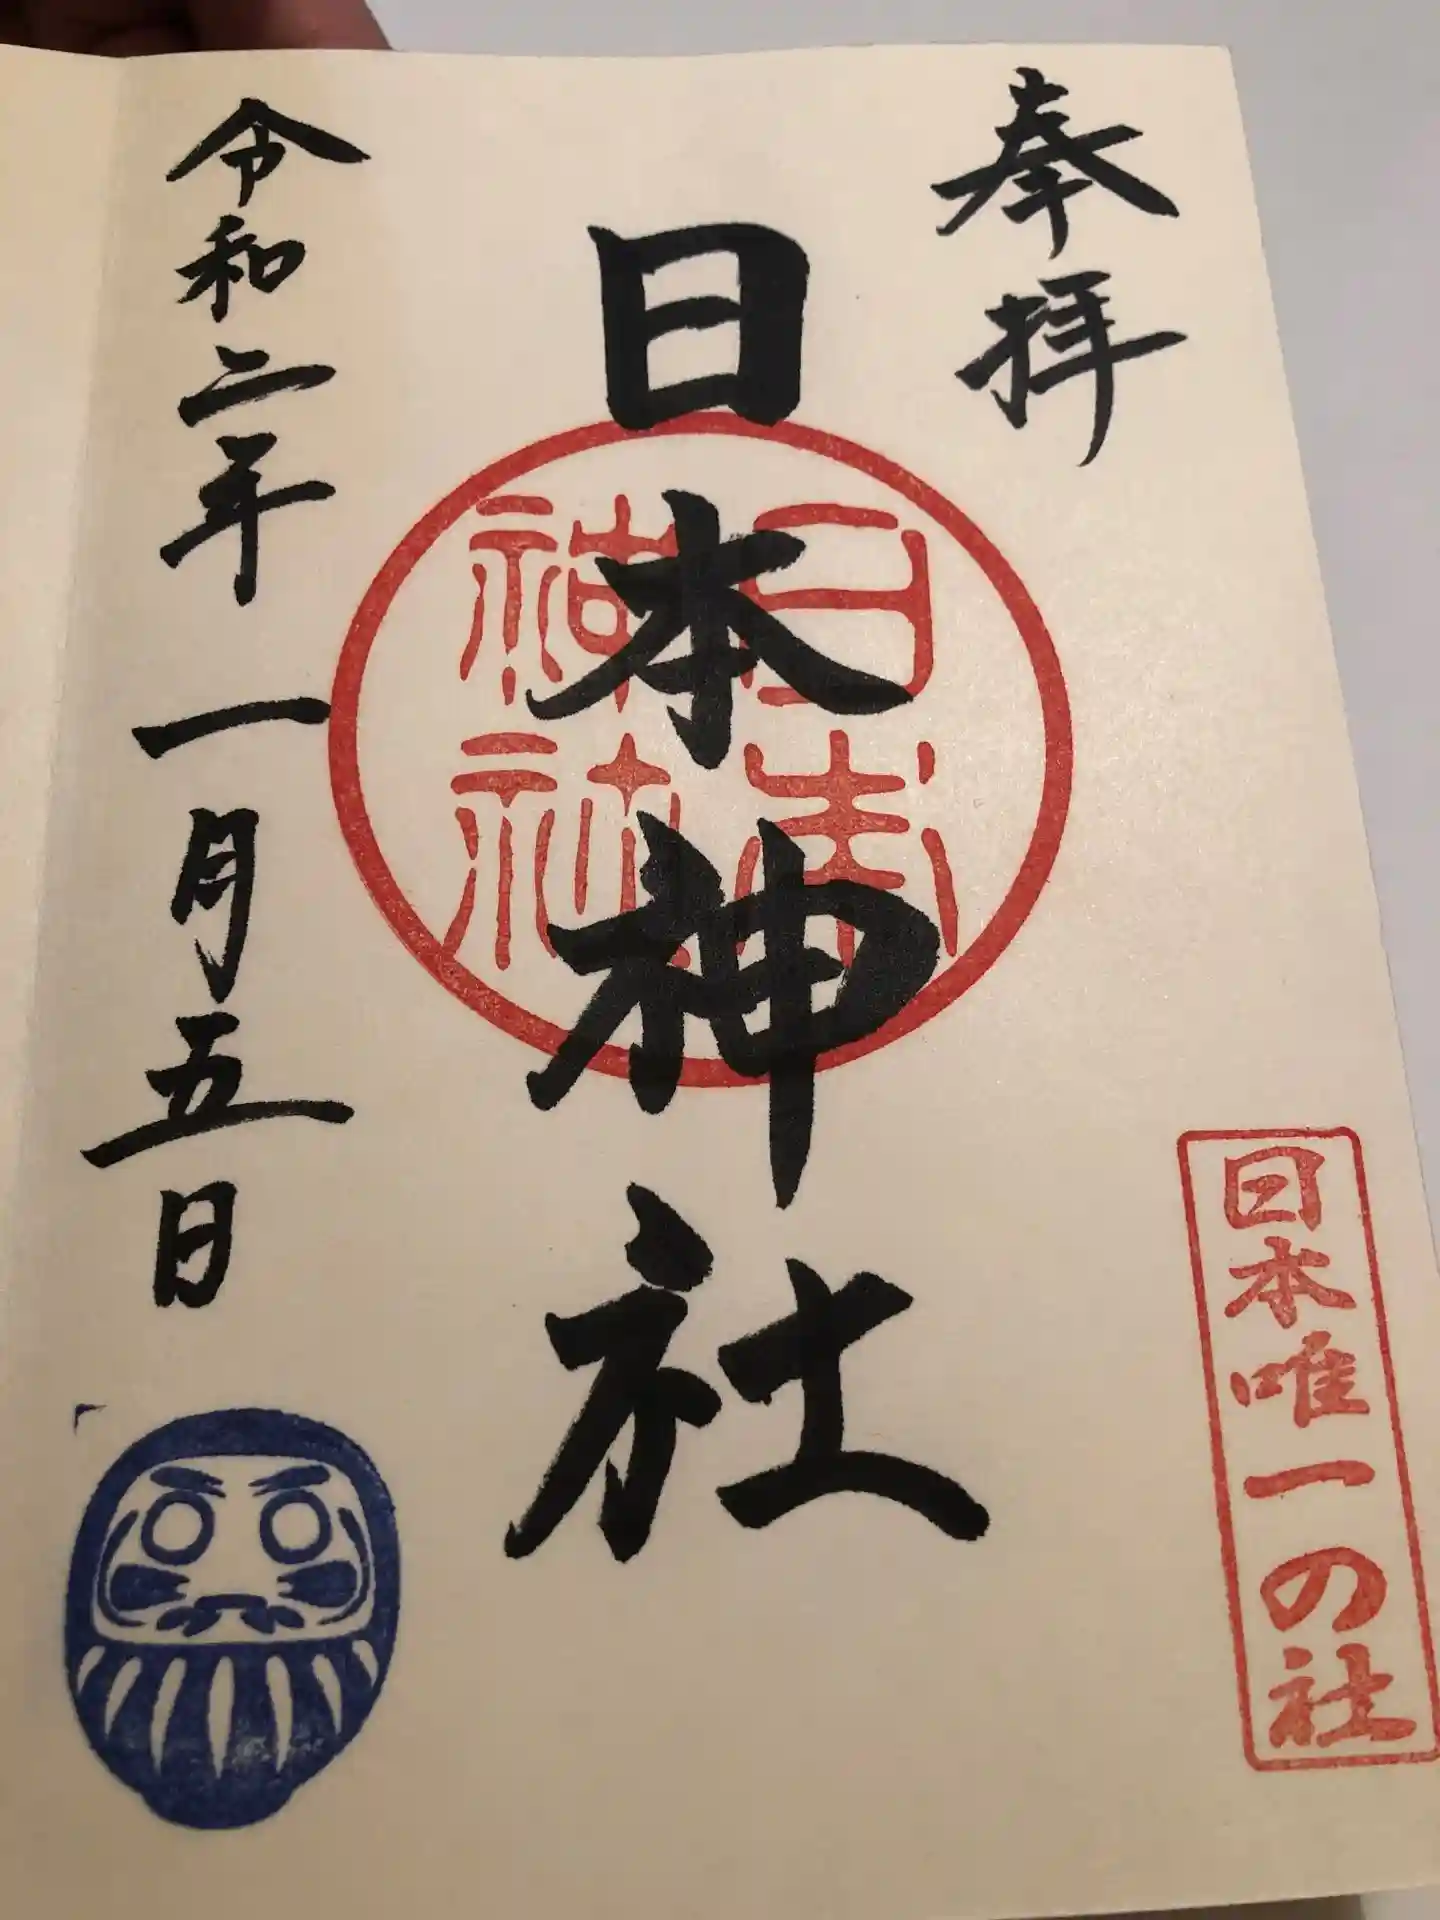 奉拝
日本唯一の社
日本神社
日本
神社
令和二年一月五日